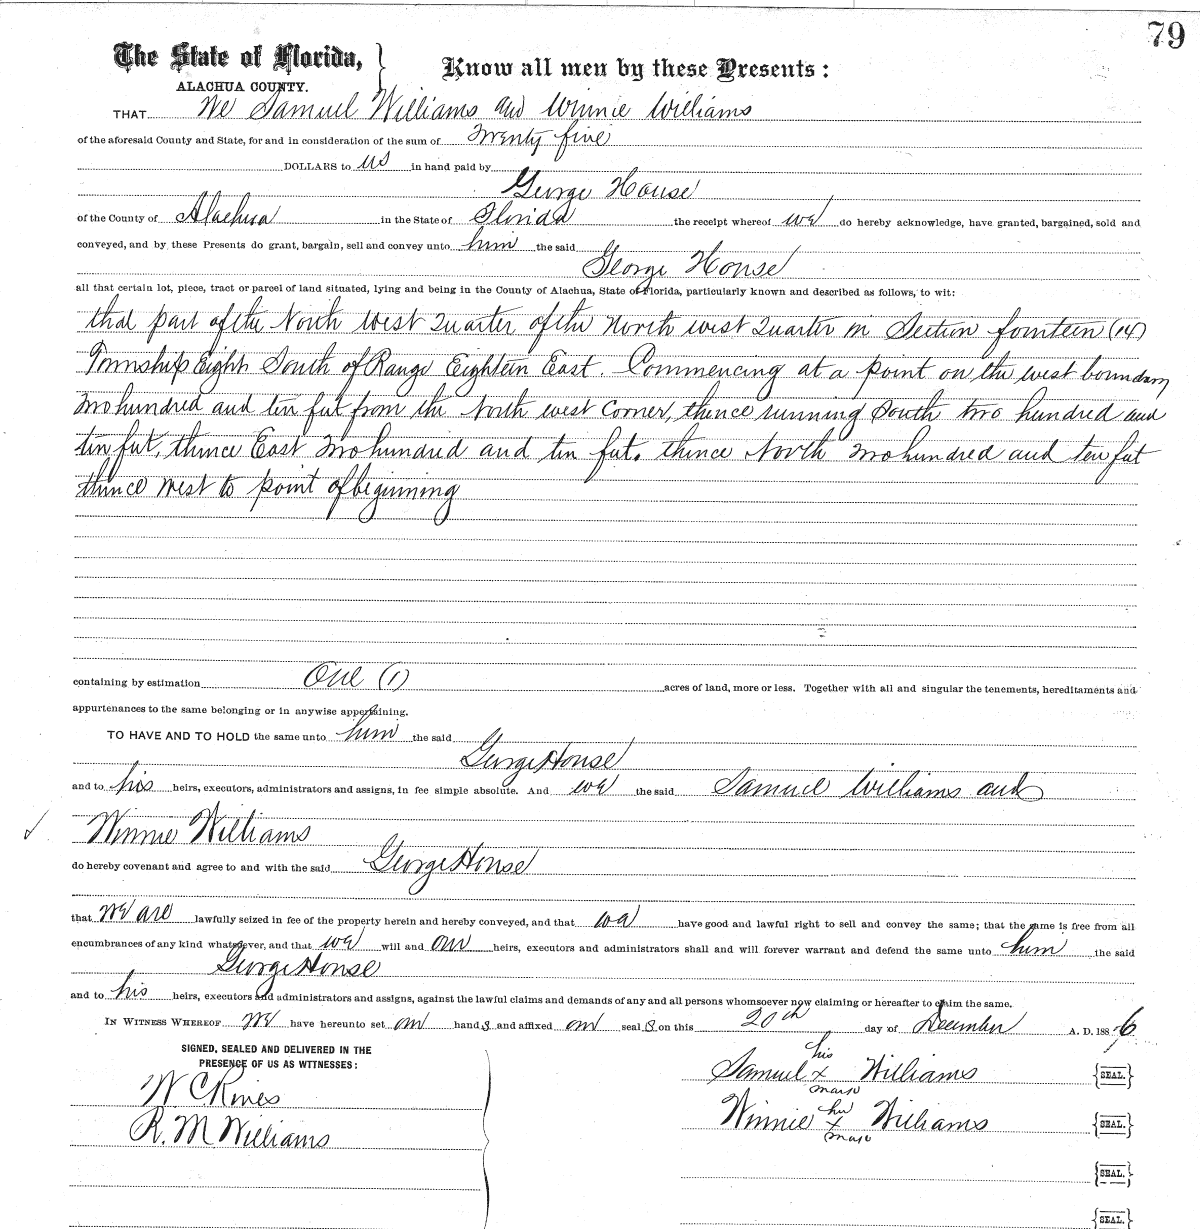 79
The State of Florida,
ALACHUA COUNTY.
Know all men by these Presents:
THAT We Samuel Williams and Winnie Williams
of the aforesaid County and State, for and in consideration of the sum of Twenty five
DOLLARS to us in hand paid by
George House
of the County of Alachua in the State of Florida the receipt whereof we do hereby acknowledge, have granted, bargained, sold and
conveyed, and by these Presents do grant, bargain, sell and convey unto him the said
George House
all that certain lot, piece, tract or parcel of land situated, lying and being in the County of Alachua, State of Florida, particularly known and described as follows, to wit:
that part of the North West Quarter of the North west Quarter in Section fourteen (14)
Township Eight South of Range Eighteen East. Commencing at a point on the west boundary
two hundred and ten feet from the North west Corner, thence running South two hundred and
ten feet, thence East two hundred and ten feet. thence North two hundred and ten feet
thence West to point of beginning
containing by estimation One (1) acres of land, more or less. Together with all and singular the tenements, hereditaments and
appurtenances to the same belonging or in anywise appertaining.
TO HAVE AND TO HOLD the same unto him the said
George House
and to his heirs, executors, administrators and assigns, in fee simple absolute. And we the said Samuel Williams and
Winnie Williams
do hereby covenant and agree to and with the said George House
that we are lawfully seized in fee of the property herein and hereby conveyed, and that we have good and lawful right to sell and convey the same; that the same is free from all
encumbrances of any kind whatsoever, and that we will and our heirs, executors and administrators shall and will forever warrant and defend the same unto him the said
George House
and to his heirs, executors and administrators and assigns, against the lawful claims and demands of any and all persons whomsoever now claiming or hereafter to claim the same.
IN WITNESS WHEREOF we have hereunto set our hands and affixed our seals on this 20th day of December A. D. 1886
SIGNED, SEALED AND DELIVERED IN THE
PRESENCE OF US AS WITNESSES:
W C Rives
R. M Williams
his
Samuel x Williams {SEAL.}
mark
her
Winnie x Williams {SEAL.}
mark
{SEAL.}
{SEAL.}